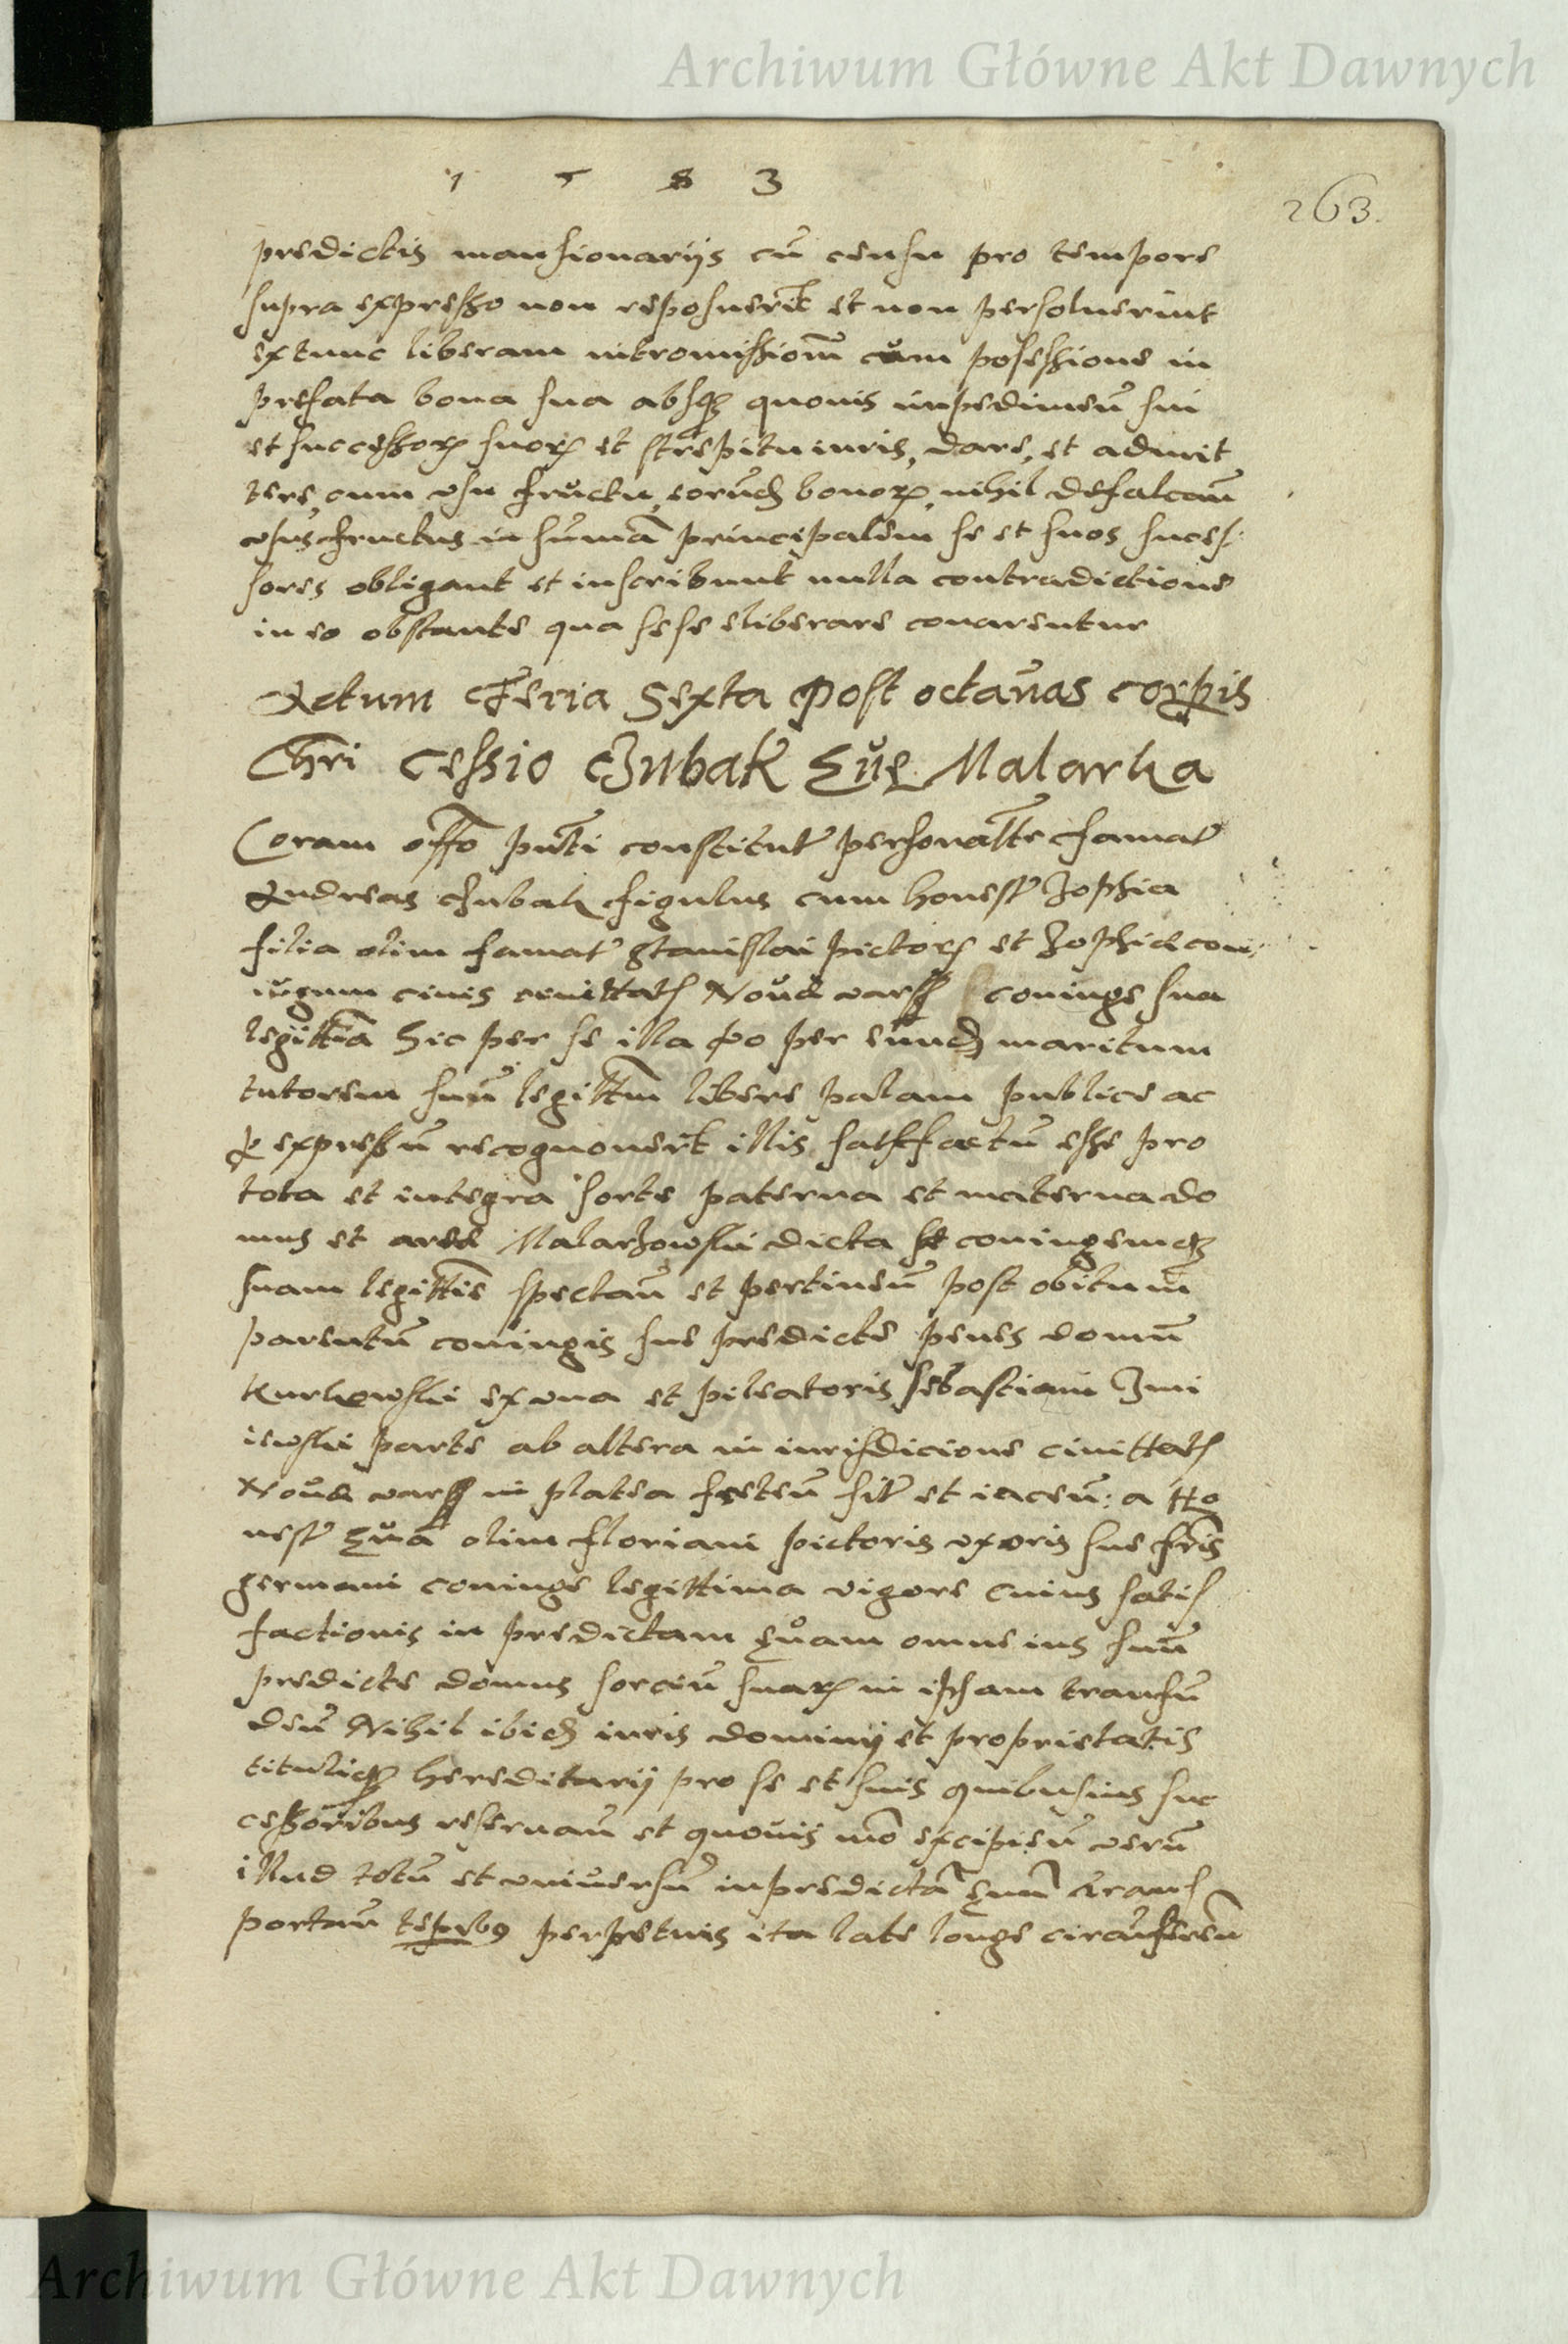 Archiwum Główne Akt Dawnych
1 5 8 3
263.
predictis mansionarijs cū censu pro tempore
supra expresso non reposuerīt et non persoluerint
extunc liberam intromissionē cum posessione in
prefata bona sua absqȝ quouis inpedimeñ sui
et successorꝝ suorꝝ et strepitu iuris, dare, et admit
tere, cum usu fructu, eorūdȝ bonorꝝ, nihil defalcañ
ususfructus in sūmā principalem se et suos suces:
sores obligant et inscribunt nulla contradictione
in eo obstante qua sese eliberare conarentur
Actum Feria Sexta Post octauas corpis
Chri cessio Czubak Eue Malarka
Coram offo pñti constitutꝰ personalr̄ famatꝰ
Andreas Czubak figulus cum honestꝰ Zophia
filia olim famatꝰ Stanislai pictorꝭ et Zophiæ con:
iugum ciuis ciuittatꝭ Nouæ varsꝭ coniuge sua
legittīa Sic per se illa vo per eundȝ maritum
tutorem suū legittīm libere palam publice ac
ꝑ expressū recognouerīt illis satisfactū esse pro
tota et integra sorte paterna et materna do
mus et areæ Malarzowski dicta se coniugemqȝ
suam legittīe spectañ et pertineñ post obitum
parentū coniugis sue predicte penes domū
Kurkowski ex una et pileatoris sebastiani Zmi
iewski parte ab altera in iurisdicione ciuittatꝭ
Nouæ varsꝭ in platea freteñ sitꝭ et iaceñ: a Ho
nestꝰ Euā olim floriani pictoris uxoris sue frīs
germani coniuge legittima vigore cuius satis
factionis in predictam Euam omne ius suū
predicte domus sorciū suarꝝ in ipsam transfū
deñ Nihil ibidȝ iuris dominij et proprietatis
tituliqȝ hereditarij pro se et suis quibusuis suc
cessoribus reseruañ et quouis mō excipieñ verū
illud totū et uniuersū in predictā Euā trans
portañ tēpībꝰ perpetuis ita late longe circūfereñ
Archiwum Główne Akt Dawnych